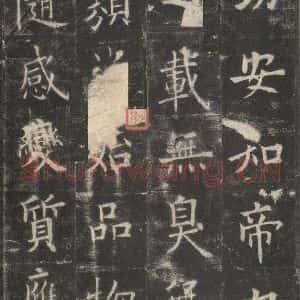 安知帝
載無臭無
類始品物
隨感變質應
shufawang.CN